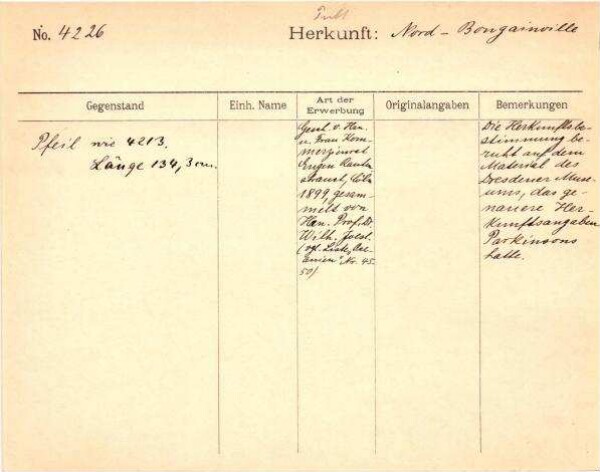 No. 4226
Herkunft: Nord - Bougainville
Gegenstand
Einh. Name
Art der Erwerbung
Originalangaben
Bemerkungen
Pfeil wie 4213.
Länge 134,3 cm.
Gesch. v. Hrn.
u. Frau Kom-
merzienrat
Eugen Rauten-
strauch, Cöln
1899, gesam-
melt von
Hrn. Prof. Dr.
Wilh. Joest.
(vgl. Liste,
"No. 45.
50)
Die Herkunftsbe-
stimmung be-
ruht auf dem
Material des
Dresdener Muse-
ums, das ge-
nauere Her-
kunftsangaben
Parkinsons
hatte.